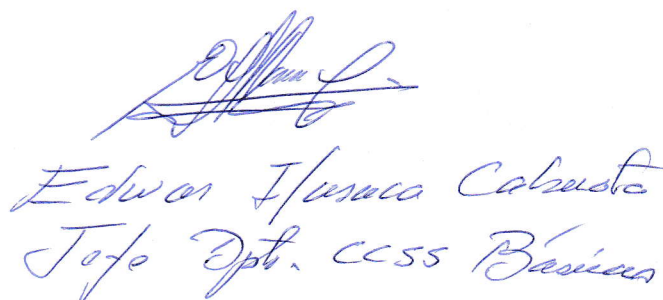 Edwar Ilasaca Cahuata
Jefe Dpto. CCSS Básicas